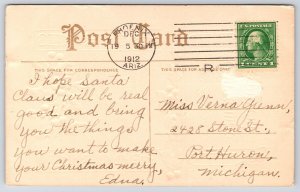 Post Card
DEC
19 5 30 PM
1912
ARIZ.
U.S. POSTAGE
1 CENT 1
THIS SPACE FOR CORRESPONDENCE
THIS SPACE FOR ADDRESS.
R
I hope Santa
Claus will be real
good and bring
you the things
you want to make
your Christmas merry,
Edna.
Miss Verna Grenn,
2428 Stone St.,
Port Huron,
Michigan.